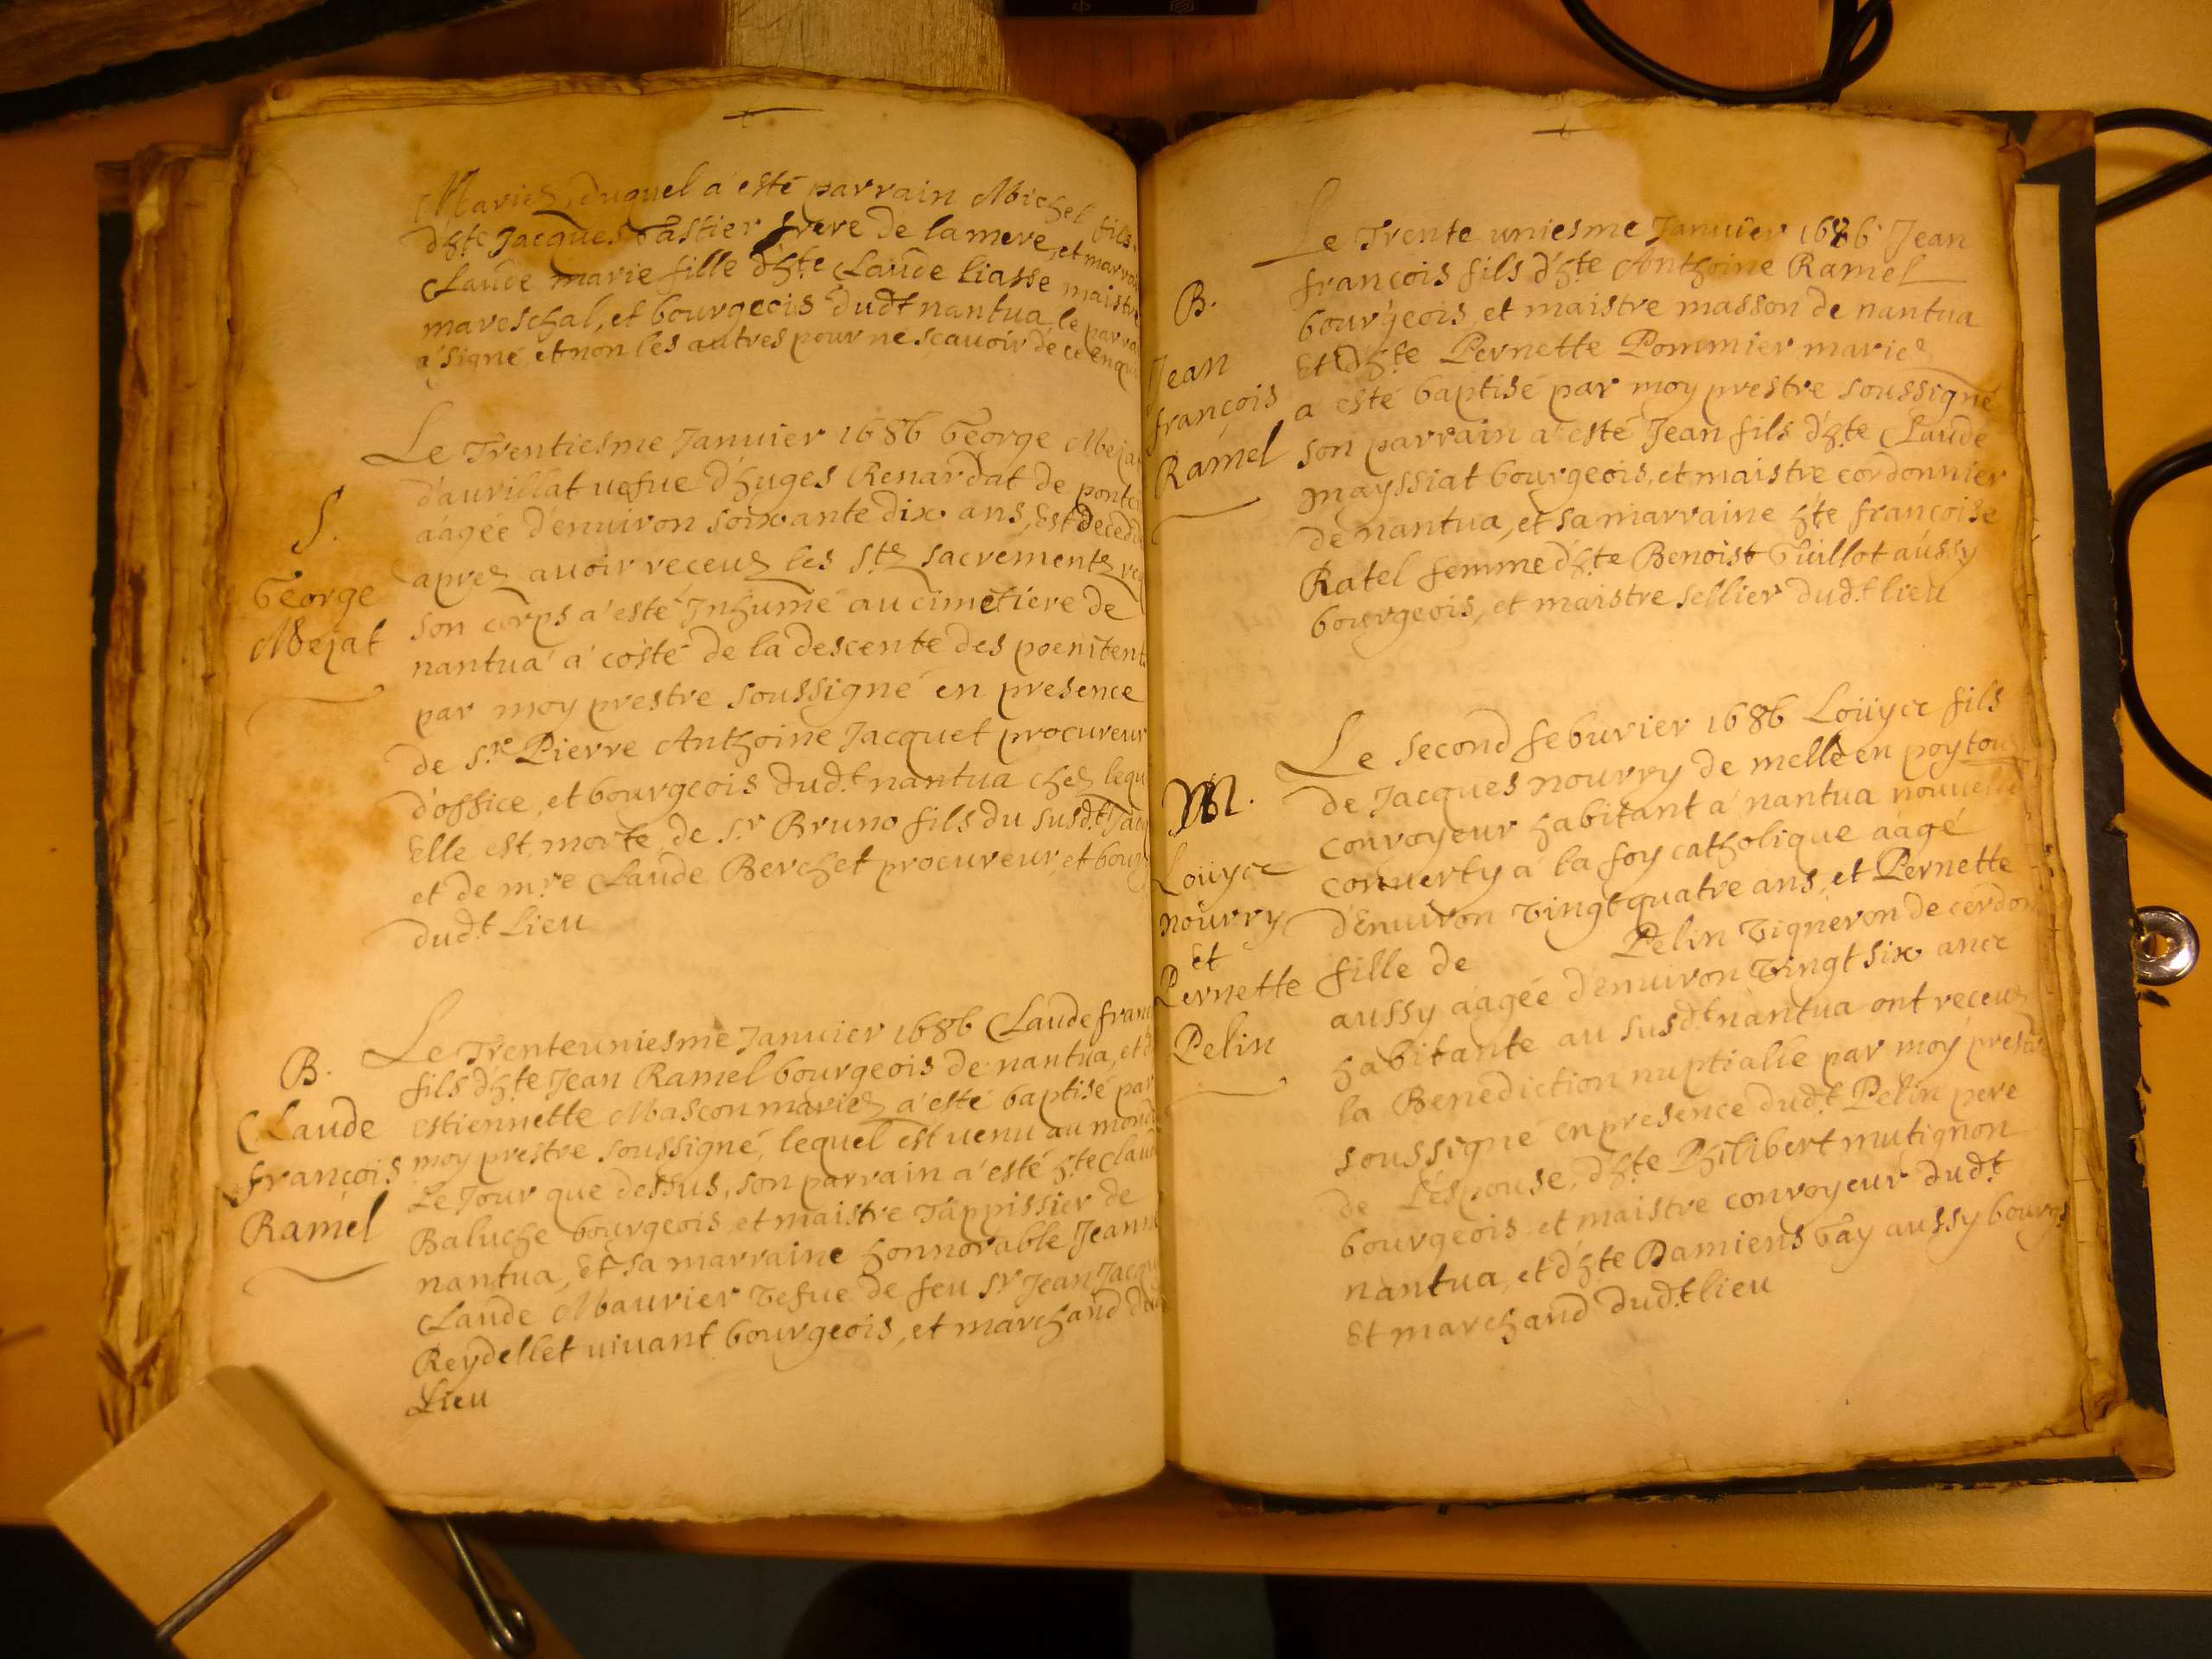 Mariez, duquel a esté parrain Michel fils
d'hte Jacques Tastier frere de la mere, et marrai
Claude marie fille d'hte Claude liasse maistre
mareschal, et bourgeois dudt nantua, le parra
a signé et non les autres pour ne scauoir de ce enqu
S.
George
Mejat
Le Trentiesme Januier 1686 George Meja
d'aurillat uefue d'huges Renardat de ponte
aagée d'enuiron soixante dix ans, Est deced
aprez auoir receuz les Stz sacrementz
son corps a esté Inhumé au cimetiere de
nantua a costé de la descente des poenitent
par moy prestre soussigné en presence
de sre Pierre Anthoine Jacquet procureur
d'office, et bourgeois dud.t nantua chez lequ
Elle est morte, de s.r Bruno fils du susd.t Jacq
et de m.re Claude Berchet procureur, et bourg
dud.t Lieu
B.
Claude
françois
Ramel
Le Trenteuniesme Januier 1686 Claude fran
fils d'hte Jean Ramel bourgeois de nantua, et d
estiennette Mascon mariez a esté baptisé par
moy prestre soussigné, lequel est uenu au mond
Le Jour que dessus, son parrain a esté h.te Clau
Baluche bourgeois, et maistre Tappissier de
nantua, Et sa marraine honnorable Jeann
Claude Maurier Vefue de feu Sr Jean Jacq
Reydellet uiuant bourgeois, et marchand dud
Lieu
B.
Jean
françois
Ramel
Le Trente uniesme Januier 1686 Jean
françois fils d'hte Anthoine Ramel
bourgeois, et maistre masson de nantua
Et d'h.te Pernette Pommier mariez
a esté baptisé par moy prestre soussigné
son parrain a esté Jean fils d'h.te Claude
mayssiat bourgeois, et maistre cordonnier
de nantua, et sa marraine h.te françoise
Ratel femme d'h.te Benoist Guillot aussy
bourgeois, et maistre sellier dud.t lieu
M.
Loüyce
nourry
Et
Pernette
Pelin
Le second feburier 1686 Loüyce fils
de Jacques nourry de melle en poytou
conroyeur habitant a nantua nouuelle
conuerty a la foy catholique aagé
d'Enuiron Vingt quatre ans, et Pernette
fille de Pelin Vigneron de cerdon
aussy aagée d'enuiron Vingt six ance
habitante au susd.t nantua ont receuz
la Benediction nuptialle par moy prestre
soussigné en presence dud.t Pelin pere
de L'espouse, d'h.te Philibert mutignon
bourgeois, et maistre conroyeur dud.t
nantua, et d'h.te Damiens Vay aussy bourgs
Et marchand dud.t lieu